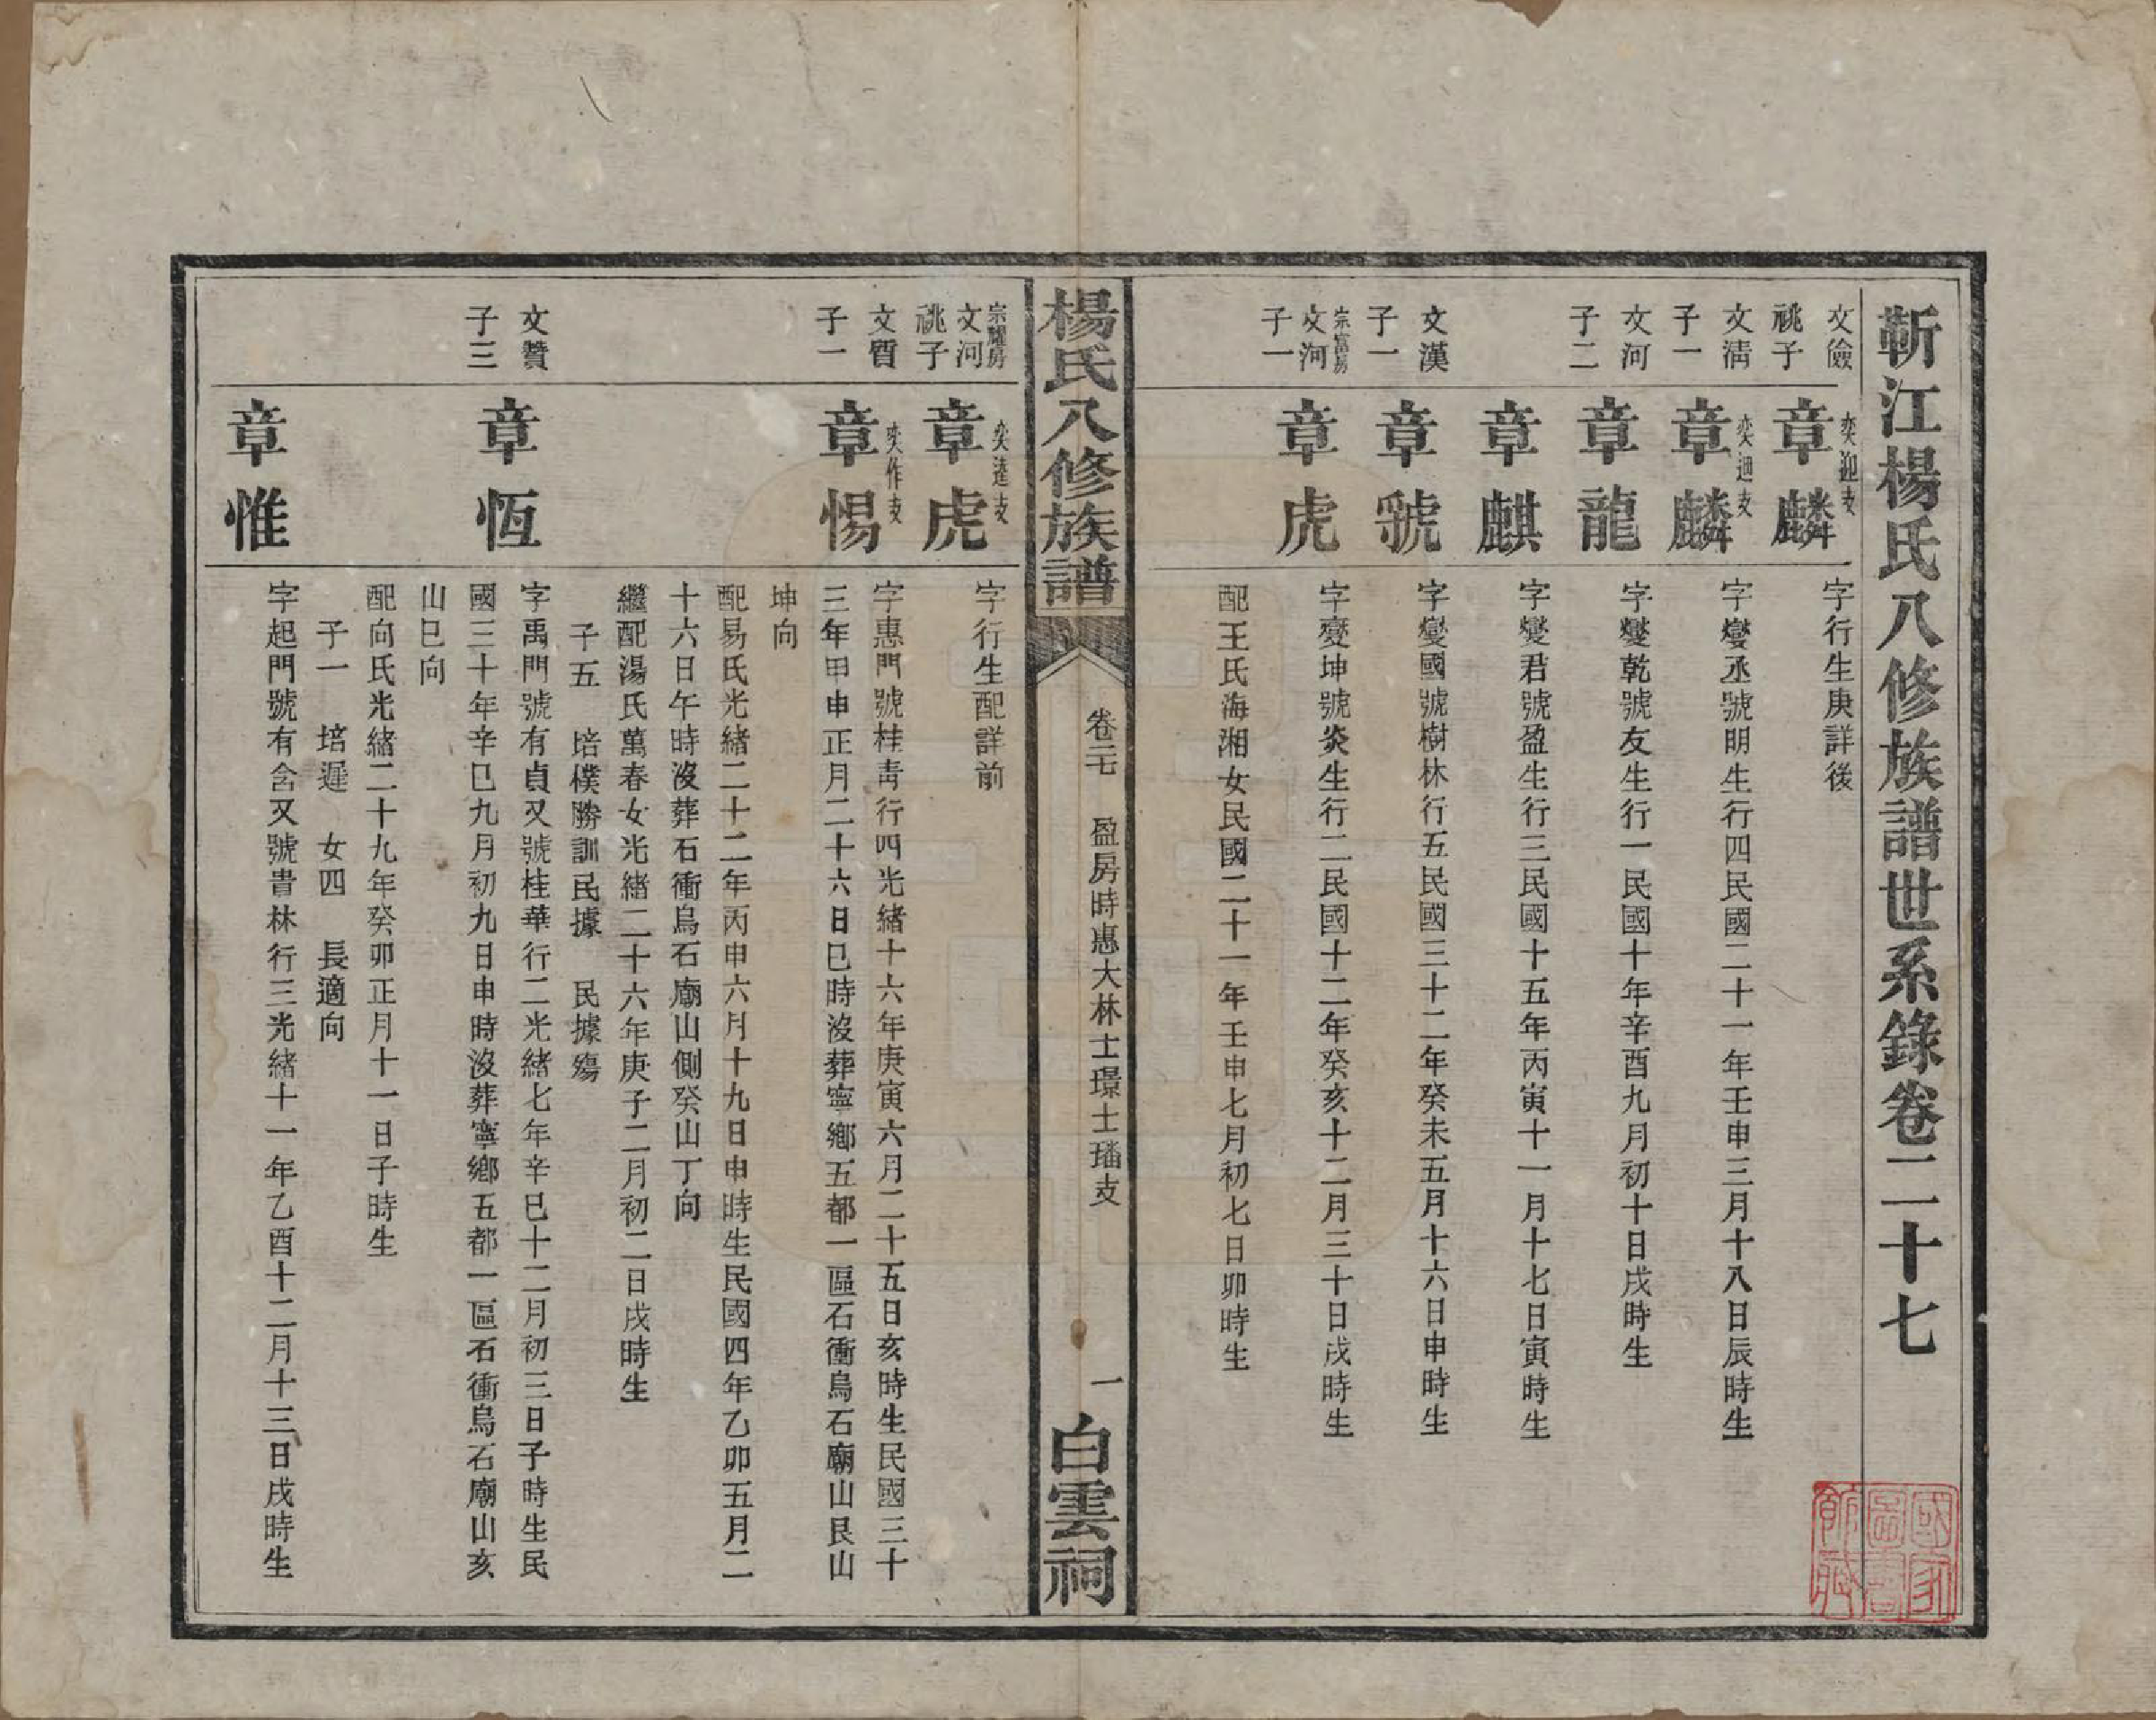 靳江楊氏八修族譜世系錄卷二十七
文儉
祧子
奕迎支
章麟
字行生庚詳後
文清
子一
奕迎支
章麟
字燮丞號明生行四民國二十一年壬申三月十八日辰時生
文河
子二
章龍
字燮乾號友生行一民國十年辛酉九月初十日戌時生
章麒
字燮君號盈生行三民國十五年丙寅十一月十七日寅時生
文漢
子一
章虢
字燮國號樹林行五民國三十二年癸未五月十六日申時生
宗富房
文河
子一
章虎
字燮坤號炎生行二民國十二年癸亥十二月三十日戌時生
配王氏海湘女民國二十一年壬申七月初七日卯時生
楊氏八修族譜
卷二七
盈房時惠大林士璟士璠支
一
白雲祠
宗耀房
文河
祧子
奕達支
章虎
字行生配詳前
文質
子一
奕作支
章惕
字惠門號桂靑行四光緒十六年庚寅六月二十五日亥時生民國三十
三年甲申正月二十六日巳時沒葬寧鄉五都一區石衝烏石廟山艮山
坤向
配易氏光緒二十二年丙申六月十九日申時生民國四年乙卯五月二
十六日午時沒葬石衝烏石廟山側癸山丁向
繼配湯氏萬春女光緒二十六年庚子二月初二日戌時生
子五　培樸勝訓民據　民據殤
文贊
子三
章恆
字禹門號有貞又號桂華行二光緒七年辛巳十二月初三日子時生民
國三十年辛巳九月初九日申時沒葬寧鄉五都一區石衝烏石廟山亥
山巳向
配向氏光緒二十九年癸卯正月十一日子時生
子一　培遲　女四　長適向
章惟
字起門號有含又號貴林行三光緒十一年乙酉十二月十三日戌時生
國家圖書館藏